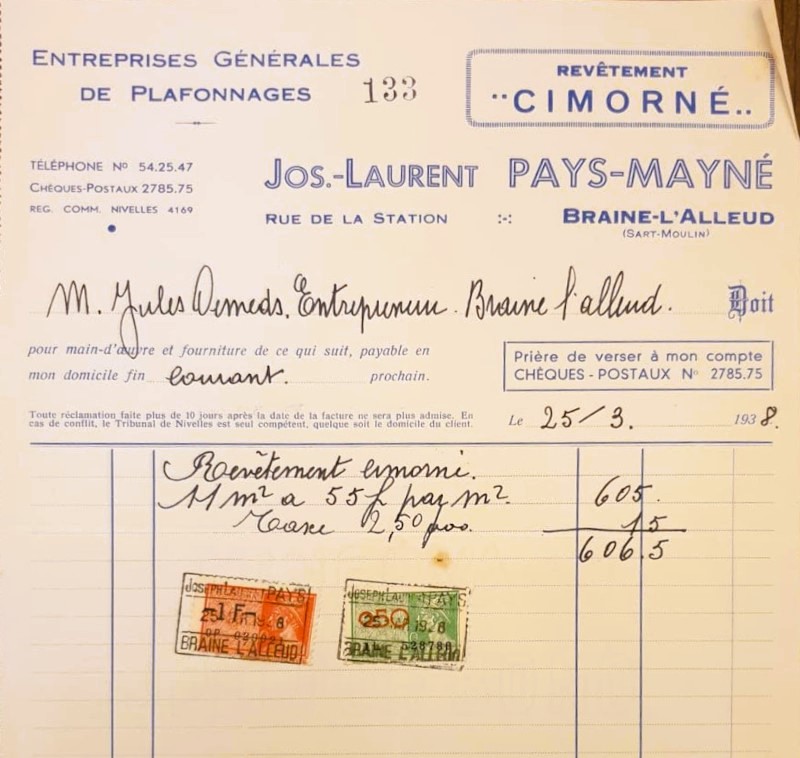 ENTREPRISES GÉNÉRALES
DE PLAFONNAGES
133
REVÊTEMENT
"CIMORNÉ..
TÉLÉPHONE No 54.25.47
CHÈQUES-POSTAUX 2785.75
REG. COMM. NIVELLES 4169
JOS.-LAURENT PAYS-MAYNÉ
RUE DE LA STATION :-: BRAINE-L'ALLEUD
(SART-MOULIN)
M. Jules Demeds. Entrepreneur. Braine l'alleud. Doit
pour main-d'œuvre et fourniture de ce qui suit, payable en
mon domicile fin courant. prochain.
Prière de verser à mon compte
CHÈQUES - POSTAUX No 2785.75
Toute réclamation faite plus de 10 jours après la date de la facture ne sera plus admise. En
cas de conflit, le Tribunal de Nivelles est seul compétent, quelque soit le domicile du client.
Le 25/3. 1938.
Revêtement cimorné.
11 m² a 55 f par m². 605.
Taxe 2,50 poo. 15
606.5
JOSEPH LAURENT PAYS
1 Fr
BRAINE L'ALLEUD
JOSEPH LAURENT PAYS
050
BRAINE L'ALLEUD